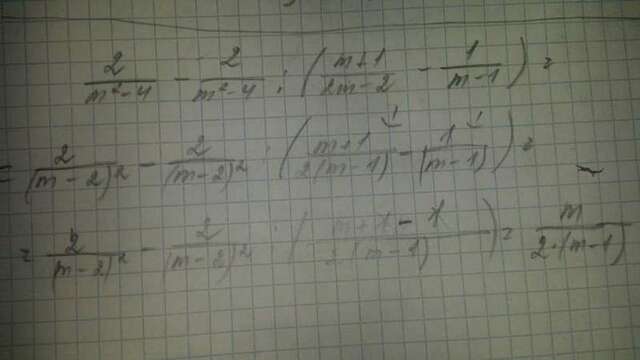 2/(m²-4) - 2/(m²-4) : ((m+1)/(2m-2) - 1/(m-1)) =
= 2/(m-2)² - 2/(m-2)² : ((m+1)/(2(m-1)) - 1/(m-1)) =
= 2/(m-2)² - 2/(m-2)² : ((m+1-1)/(2(m-1))) = m/(2·(m-1))